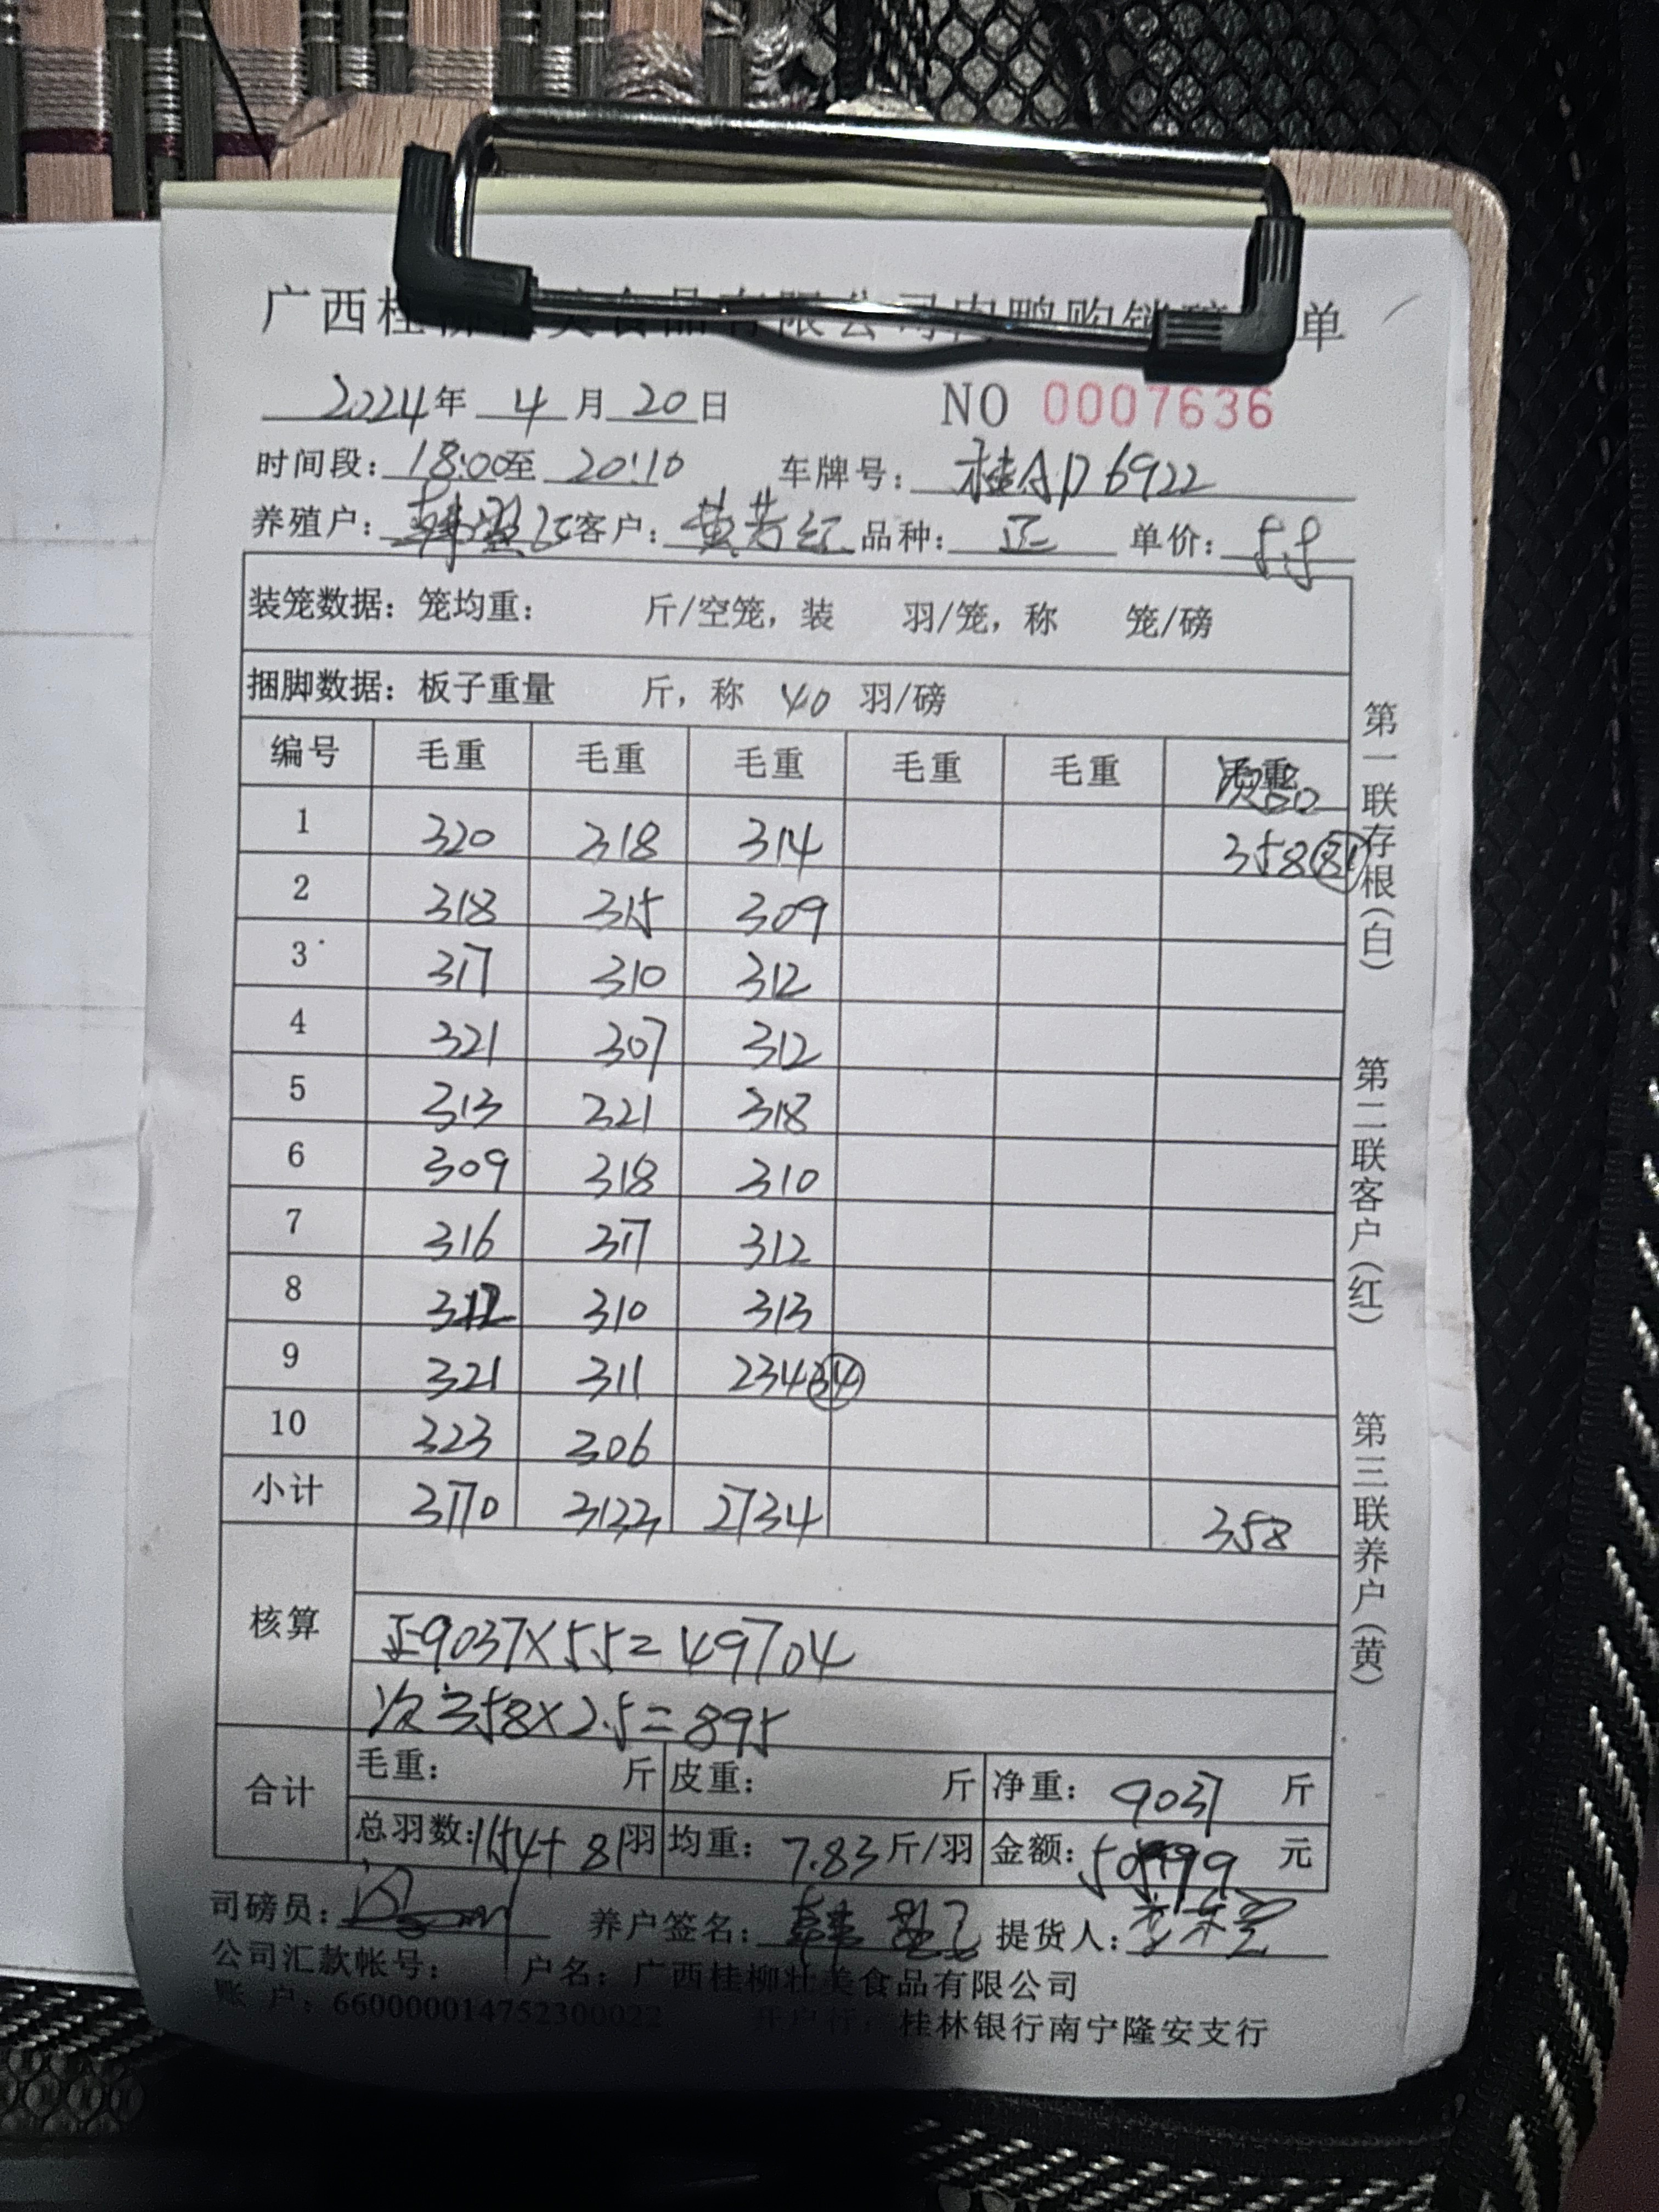 广西桂柳壮美食品有限公司肉鸭购销磅单
2024年 4 月 20 日 NO 0007636
时间段: 18:00至 20:10 车牌号: 桂AD6922
养殖户: 客户: 黄芳红 品种: 正 单价: 5.5
装笼数据: 笼均重: 斤/空笼, 装 羽/笼, 称 笼/磅
捆脚数据: 板子重量 斤, 称 40 羽/磅
编号 毛重 毛重 毛重 毛重 毛重
1 320 318 314 358 81
2 318 315 309
3 317 310 312
4 321 307 312
5 313 321 318
6 309 318 310
7 316 317 312
8 312 310 313
9 321 311 234 34
10 323 306
小计 3170 3133 2734 358
核算
正9037×5.5=49704
次358×2.5=895
合计 毛重: 斤 皮重: 斤 净重: 9037 斤
总羽数: 1154+81羽 均重: 7.83斤/羽 金额: 50599 元
司磅员: 养户签名: 提货人:
公司汇款帐号: 户名: 广西桂柳壮美食品有限公司
账 户: 660000014752300022 开户行: 桂林银行南宁隆安支行
第一联存根(白) 第二联客户(红) 第三联养户(黄)